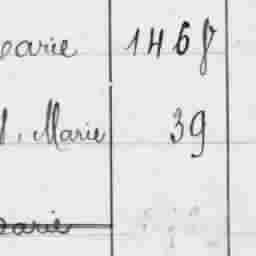 parie 1468
M. Marie 39
parie